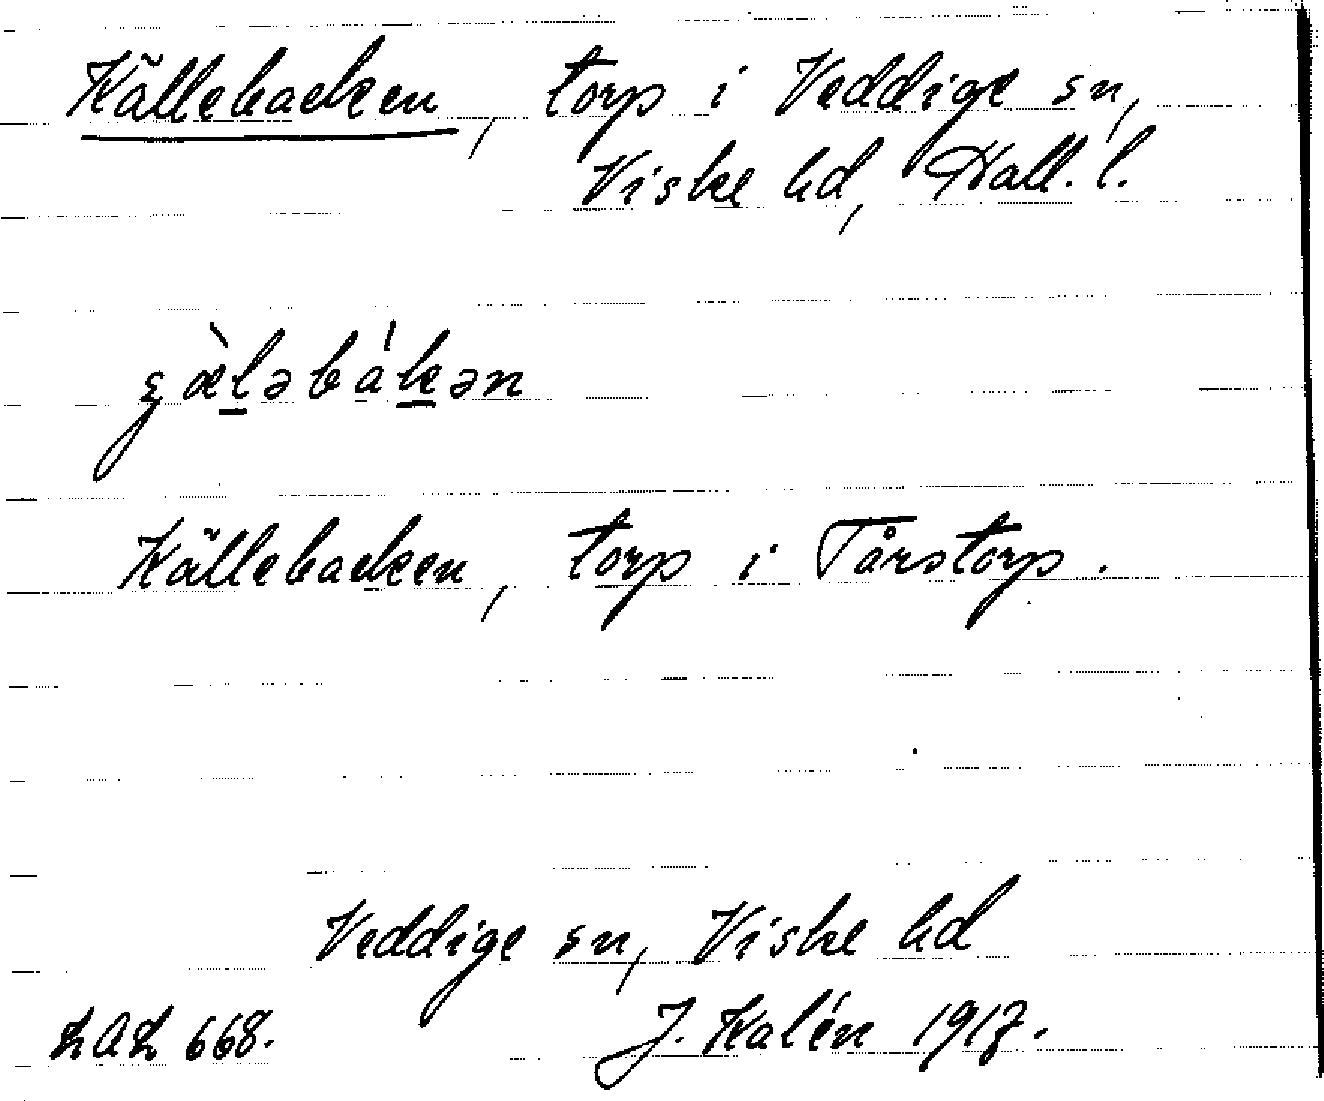 Källebacken, torp i Veddige sn,
Viske hd, Hall. l.
Källebacken, torp i Tårstorp.
Veddige sn, Viske hd
LAL 668. J. Kalén 1917.